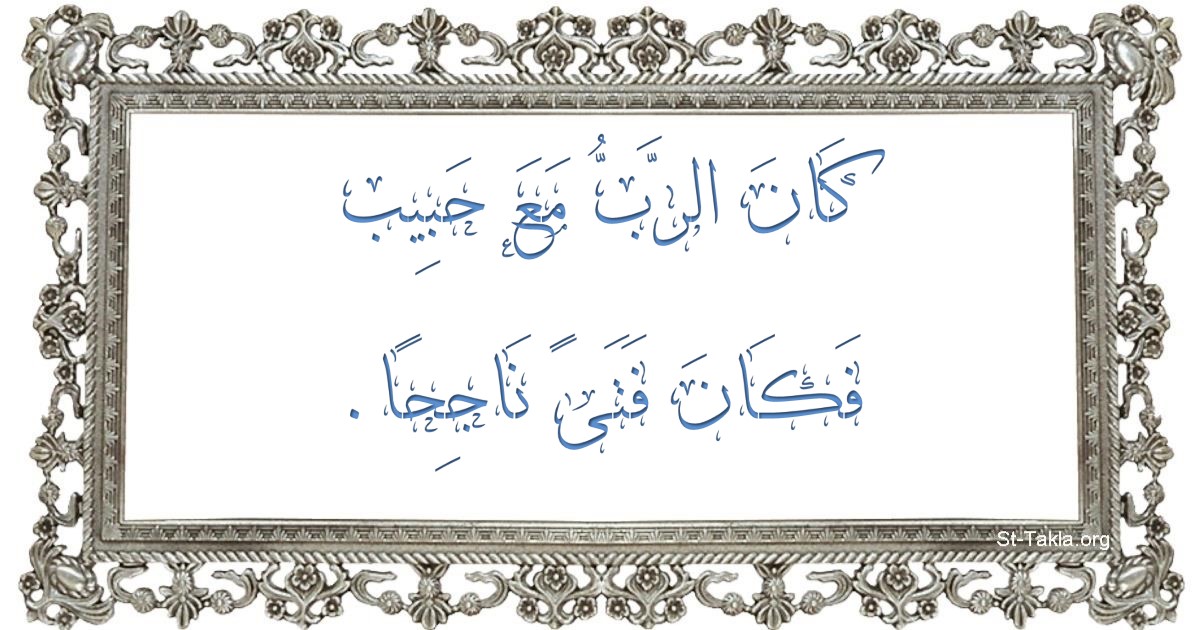 كَانَ الرَّبُّ مَعَ حَبِيِب
فَكَانَ فَتَىً نَاجِحًا .
St-Takla.org